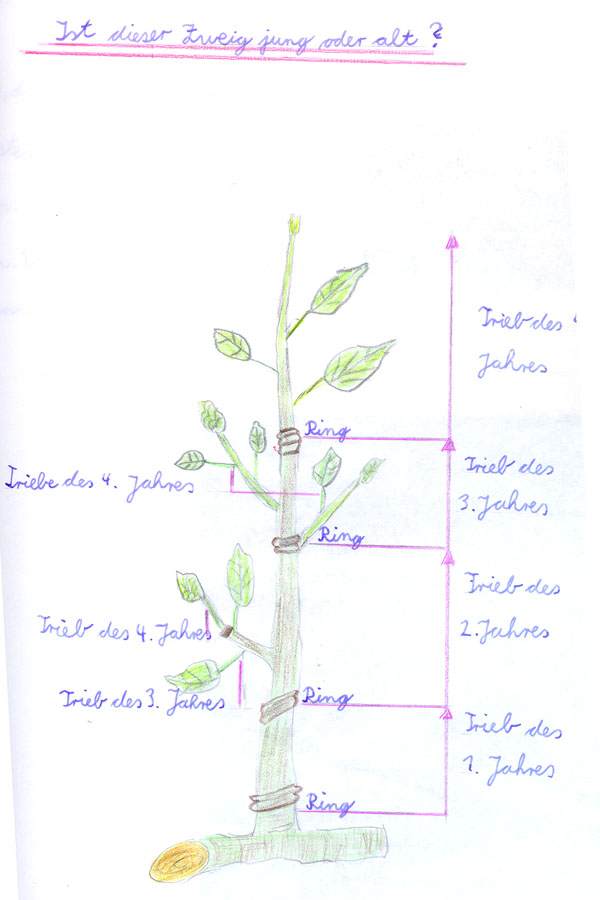 Ist dieser Zweig jung oder alt?
Trieb des
Jahres
Ring
Triebe des 4. Jahres
Trieb des
3. Jahres
Ring
Trieb des
2. Jahres
Trieb des 4. Jahres
Trieb des 3. Jahres
Ring
Trieb des
1. Jahres
Ring